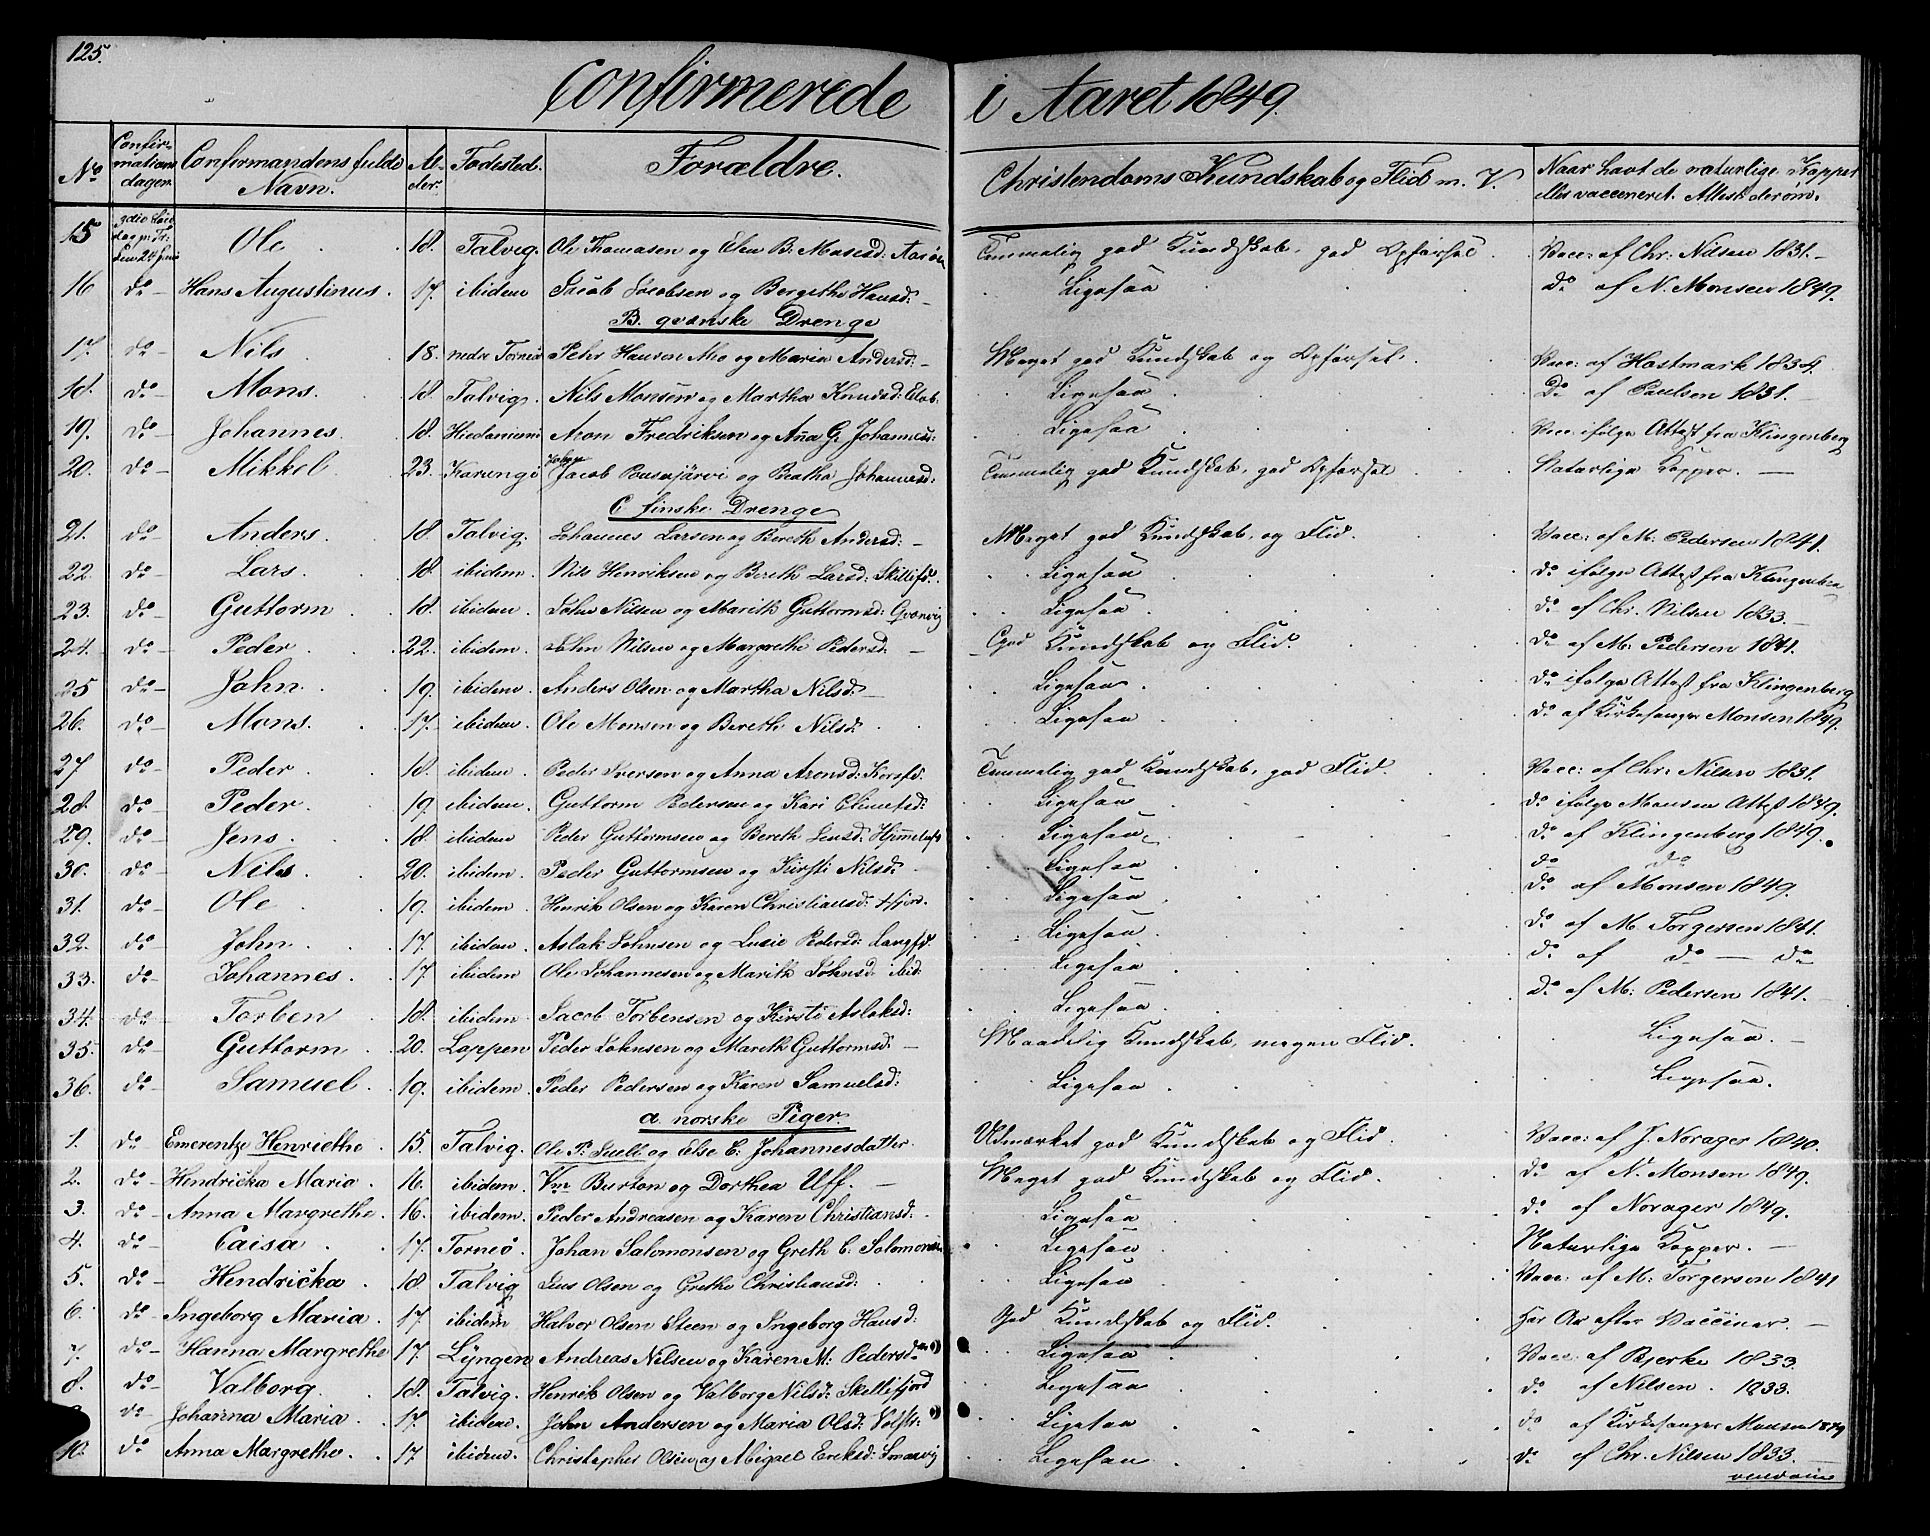 125.
Confirmerede i Aaret 1849.
No Confirmations dagen. Confirmandens fulde Navn. Alder. Fødested. Forældre. Christendoms Kundskab og Flid m. V. Naar havt de naturlige Kopper eller vaccineret. Attest derom.
15 Ole 18. Talvig. Ole Thomasen og Elen B. Temmelig god Kundskab, god Opførsel. Vacc: af Chr: Nilsen 1831.
16 do Hans Augustinus. 17. ibidem Jacob Jacobsen og Bergithe Hansd: Ligesaa do af N. Monsen 1849.
B. qvænske Drenge
17. do Nils 18. Peter Hansen og Maria Andersd: Meget god Kundskab og Opførsel. Vacc: af Hostmark 1834.
18. do Mons. 18. Talvig. Nils Monsen og Martha Knudsd: Ligesaa Do af Paulsen 1831.
19. do Johannes. 18. Aron Fredriksen og Ana G. Johannesd: Ligesaa Vacc: ifølge Attest fra Klingenberg
20. do Mikkel 23. Karungi Johan Jacob og Beatha Johannesd: Temmelig god Kundskab, god Opførsel Naturlige Kopper.
C finske Drenge
21. do Anders. 18 Talvig. Johannes Larsen og Bereth Andersd: Meget god Kundskab, og Flid. Vacc: af M: Pedersen 1841.
22. do Lars. 18. ibidem. Nils Henriksen og Bereth Larsd: Skillefd. Ligesaa do ifølge Attest fra Klingenberg
23. do Guttorm 18. ibidem. John Nilsen og Marith Guttormsd: Qvænvig Ligesaa do af Chr. Nilsen 1833.
24. do Peder. 22. ibidem. John Nilsen og Margrethe Pedersd. God Kundskab og Flid. do af M: Pedersen 1841.
25 do John. 19. ibidem. Anders Olsen og Martha Nilsd: Ligesaa do ifølge Attest fra Klingenberg
26. do Mons. 17. ibidem. Ole Monsen og Bereth Nilsd: Ligesaa do af Kirkesanger Monsen 1849.
27 do Peder 18. ibidem. Peder Iversen og Anna Aronsd: Korsfd. Temmelig god Kundskab, god Flid. Vacc: af Chr: Nilsen 1831.
28. do Peder. 19. ibidem. Guttorm Pedersen og Kari Ligesaa do ifølge Monsens Attest 1849.
29. do Jens. 18. ibidem Peder Guttormsen og Bereth Ligesaa. do af Klingenberg 1849.
30. do Nils 20. ibidem. Peder Guttormsen og Kirsti Nilsd: Ligesaa do do
31. do Ole 19. ibidem. Henrik Olsen og Karen Christiansd: Ligesaa do af Monsen 1849.
32. do John. 17. ibidem. Aslak Johnsen og Lusie Pedersd: Langfd. Ligesaa do af M. Torgersen 1841.
33. do Johannes. 17 ibidem. Ole Johannesen og Marith Johnsd: ibid: Ligesaa do af do — do
34. do Torben 18. ibidem. Jacob Torbensen og Kirsti Aslaksd: Ligesaa do af M: Pedersen 1841.
35. do Guttorm 20. Loppen Peder Johnsen og Mareth Guttormsd: Maadelig Kundskab, megen Flid. Ligesaa.
36. do Samuel. 19. ibidem. Peder Pedersen og Karen Samuelsd: Ligesaa Ligesaa.
a. norske Piger.
1. do Emerentze Henriethe 15. Talvig. Ole P: Buell og Else C: Johannesdatter Udmærket god Kundskab og Flid. Vacc: af J. Norager 1840.
2. do Hendricka Maria. 16. ibidem. Vm Burton og Dorthea Uff. Meget god Kundskab og Flid. do af N. Monsen 1849.
3. do Anna Margrethe. 16. ibidem. Peder Andreasen og Karen Christiansd: Ligesaa do af Norager 1849.
4. do Caisa. 17. Torneö. Johan Salomonsen og Greth C. Salomonsd: Ligesaa Naturlige Kopper.
5. do Hendricka 18 Talvig Jens Olsen og Grethe Christiansd: Ligesaa Vacc: af M: Torgersen 1841
6. do Ingeborg Maria. 17. ibidem Halvor Olsen Steen og Ingeborg Hansd: God Kundskab og Flid. Har Ar efter Vacciner.
7. do Hanna Margrethe 17. Lyngen Andreas Nilsen og Karen M: Pedersd: Ligesaa Vacc: af Bjerke 1833.
8. do Valborg. 18. Talvig. Henrik Olsen og Valborg Nilsd: Skillefjord Ligesaa do af Nilsen. 1833.
do Johanna Maria. 17. ibidem. John Andersen og Maria Olsd: Ligesaa do af Kirkesanger Monsen 1849
10. do Anna Margrethe. 17 ibidem. Christopher Olsen og Abigael Ericksd: Ligesaa do af Chr. Nilsen 1833.